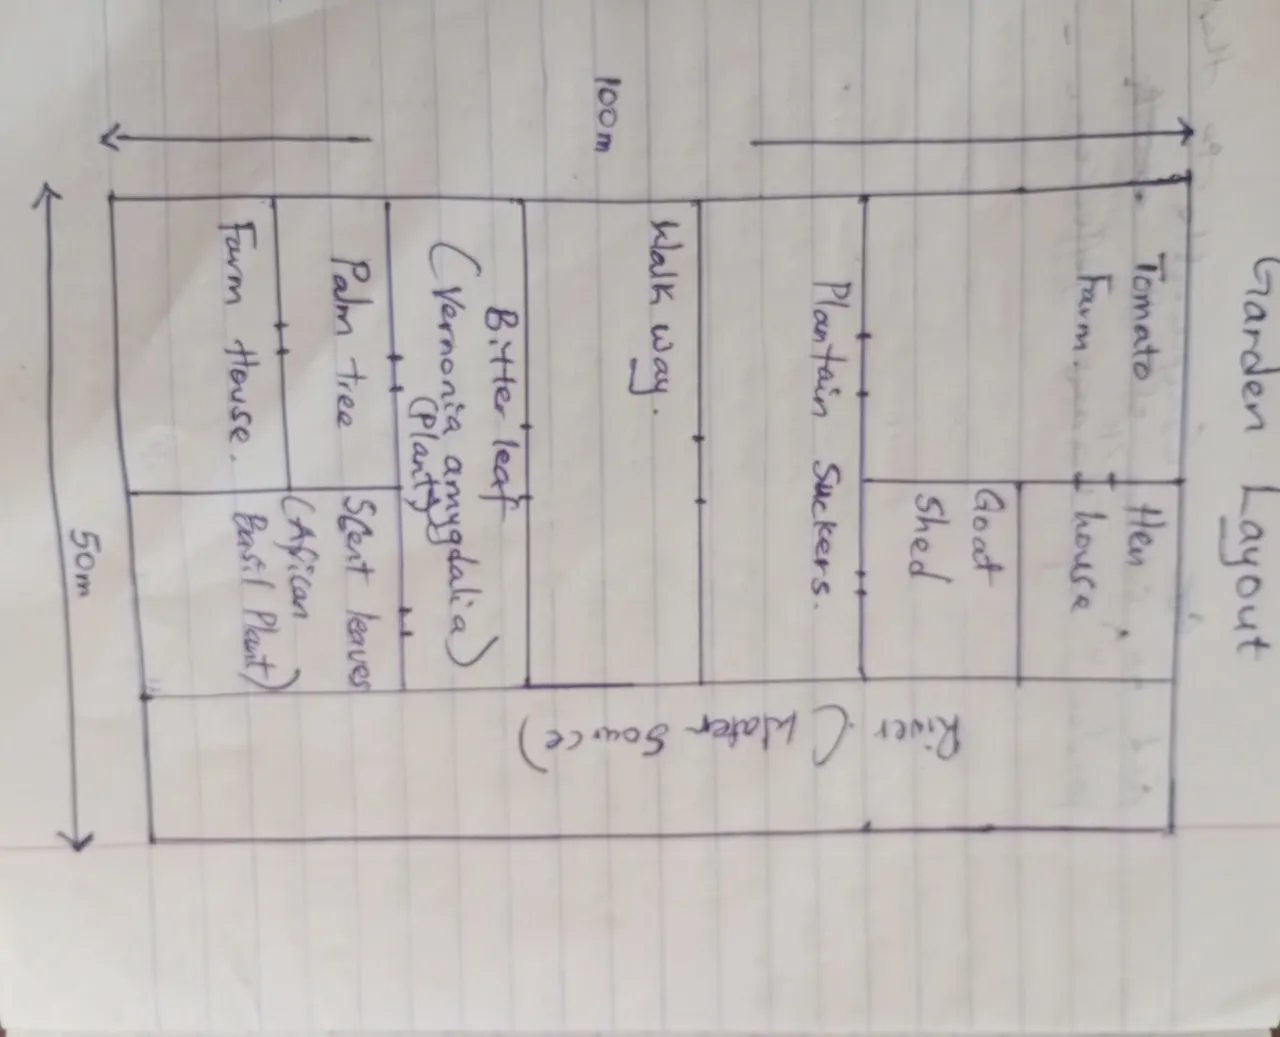 Garden Layout
Tomato
Farm.
Hen
house
Goat
Shed
Plantain Suckers.
Walk way.
Bitter leaf
(Vernonia amygdalia)
(Plant)
Palm tree
Scent leaves
(African
Basil Plant)
Farm House.
River (Water Source)
100m
50m